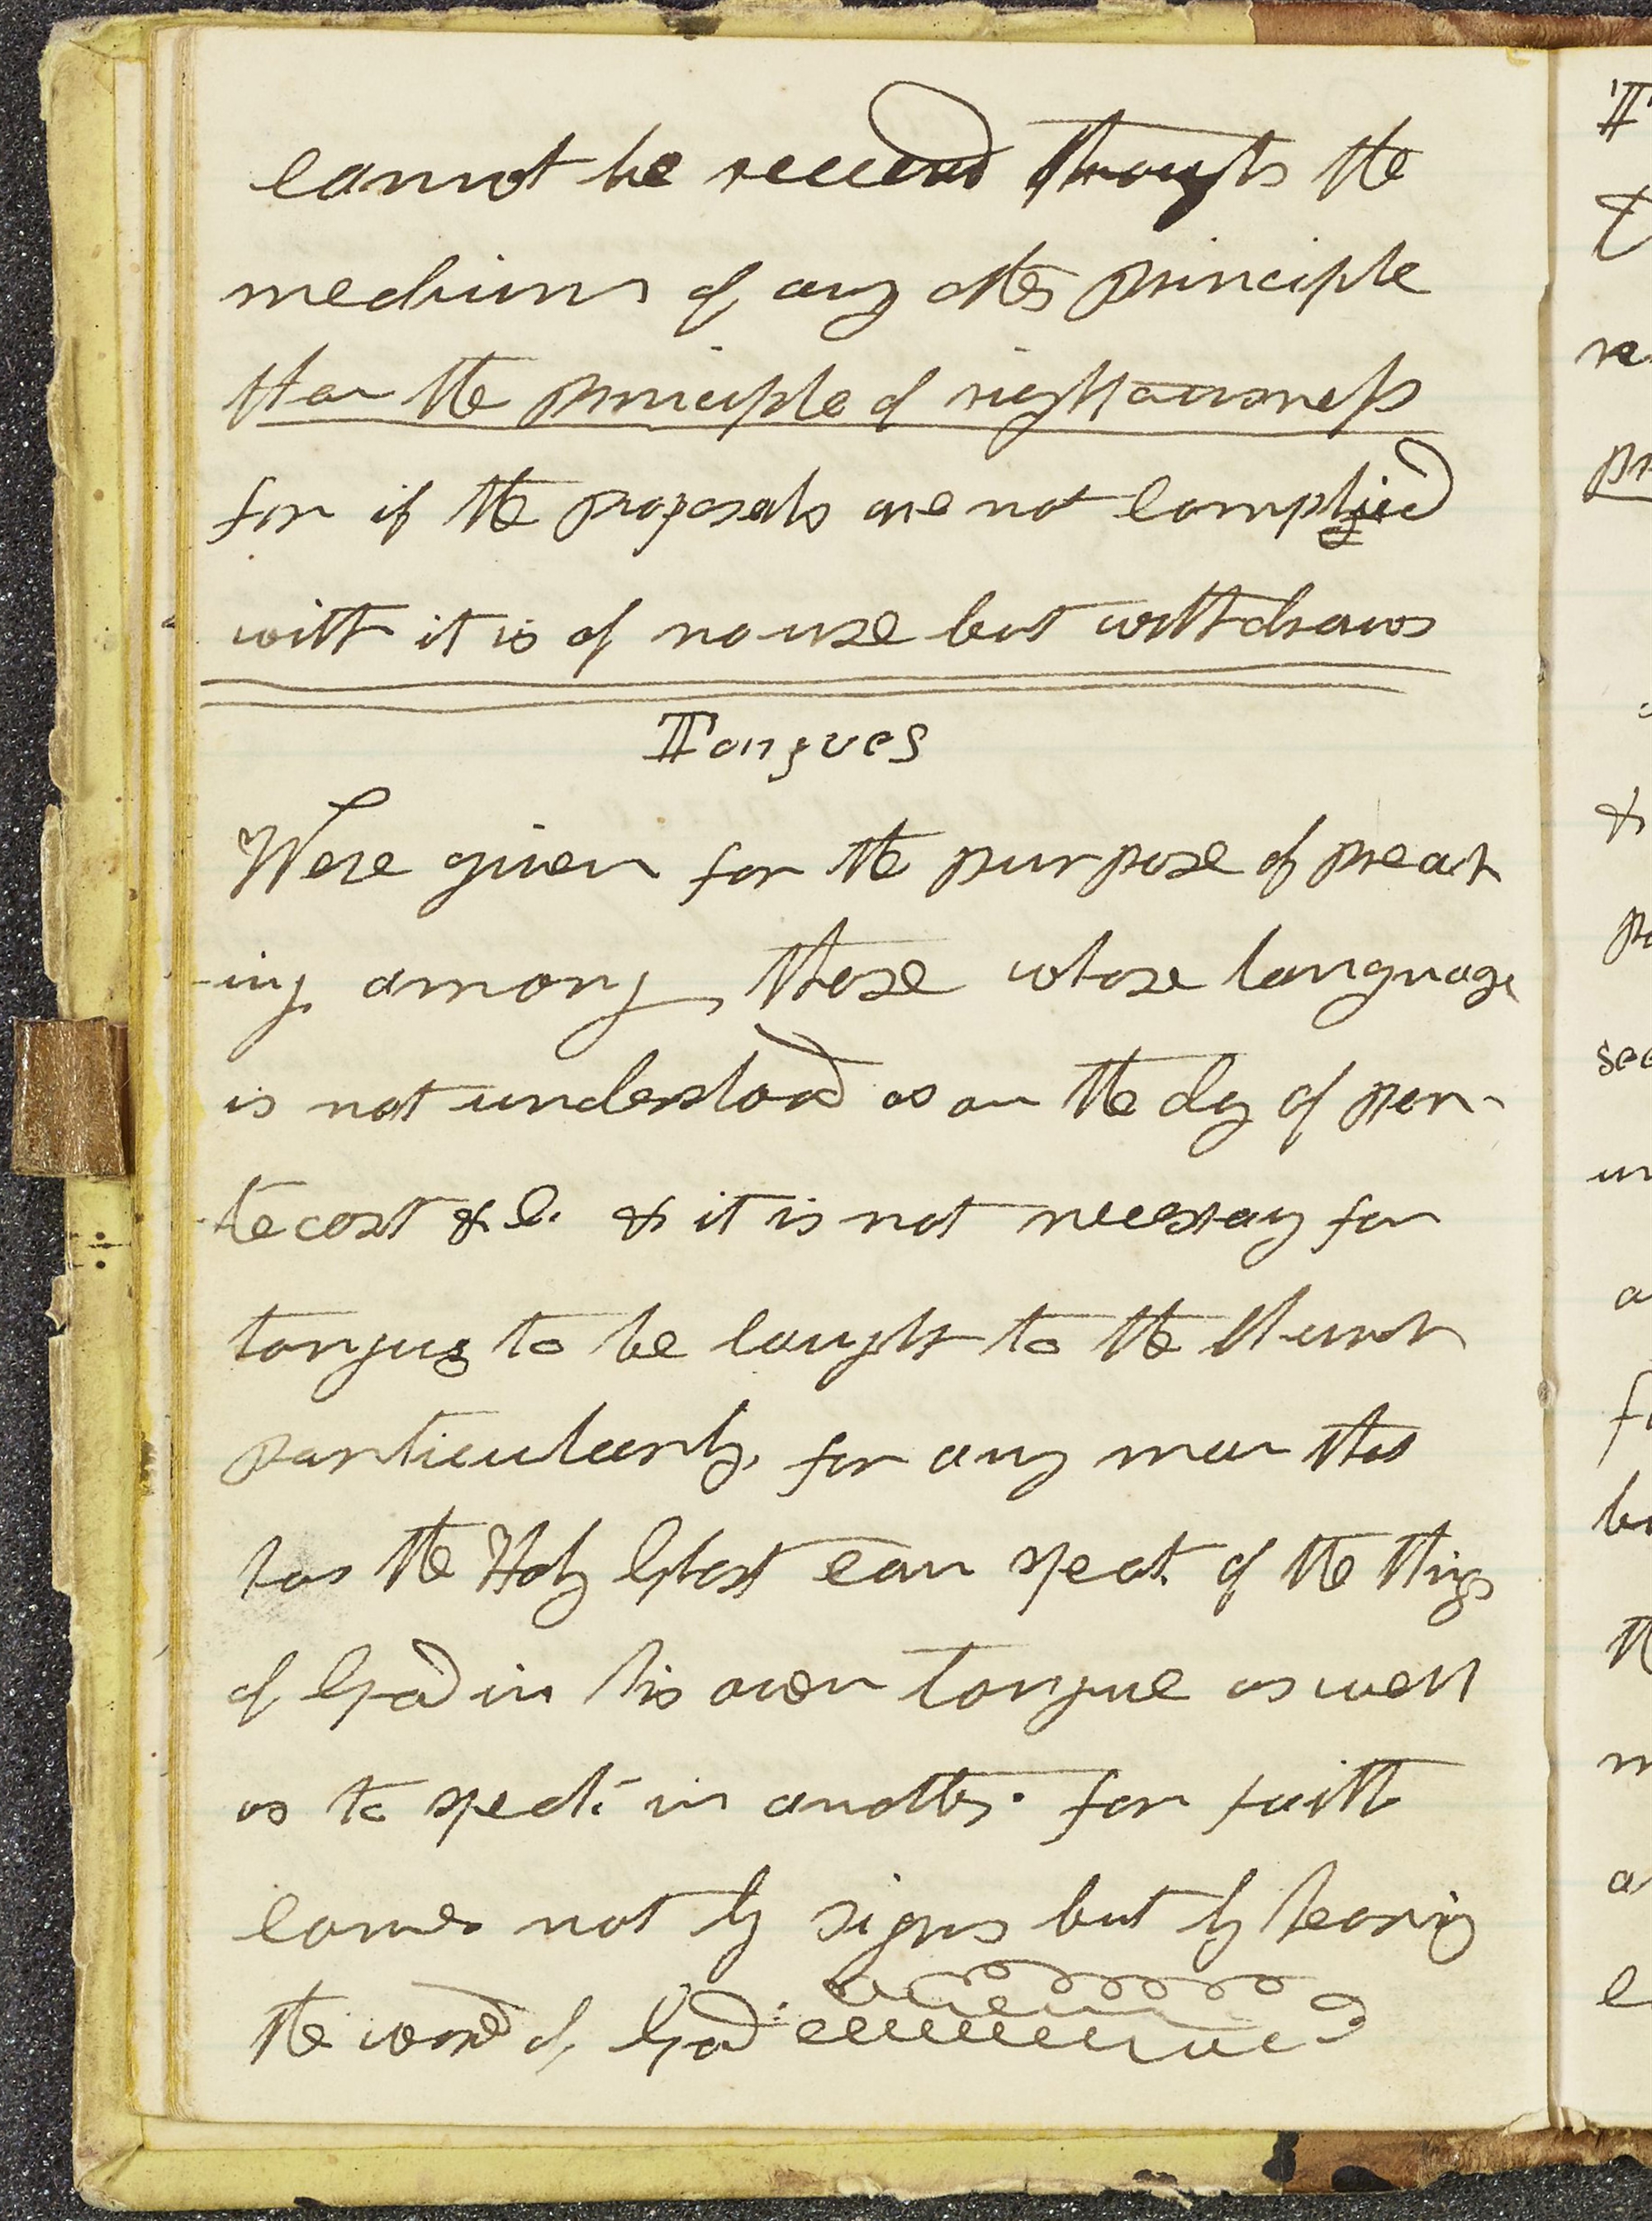 cannot be received through the
medium of any other principle
than the principle of righteousness
for if the proposals are not complied
with it is of no use but withdraws
Tongues
Were given for the purpose of preach
-ing among those whose language
is not understood as on the day of pen-
tecost &c. & it is not necessary for
tongues to be taught to the church
particularly, for any man that
has the Holy Ghost can speak of the things
of God in his own tongue as well
as to speak in another. for faith
comes not by signs but by hearing
the word of God: